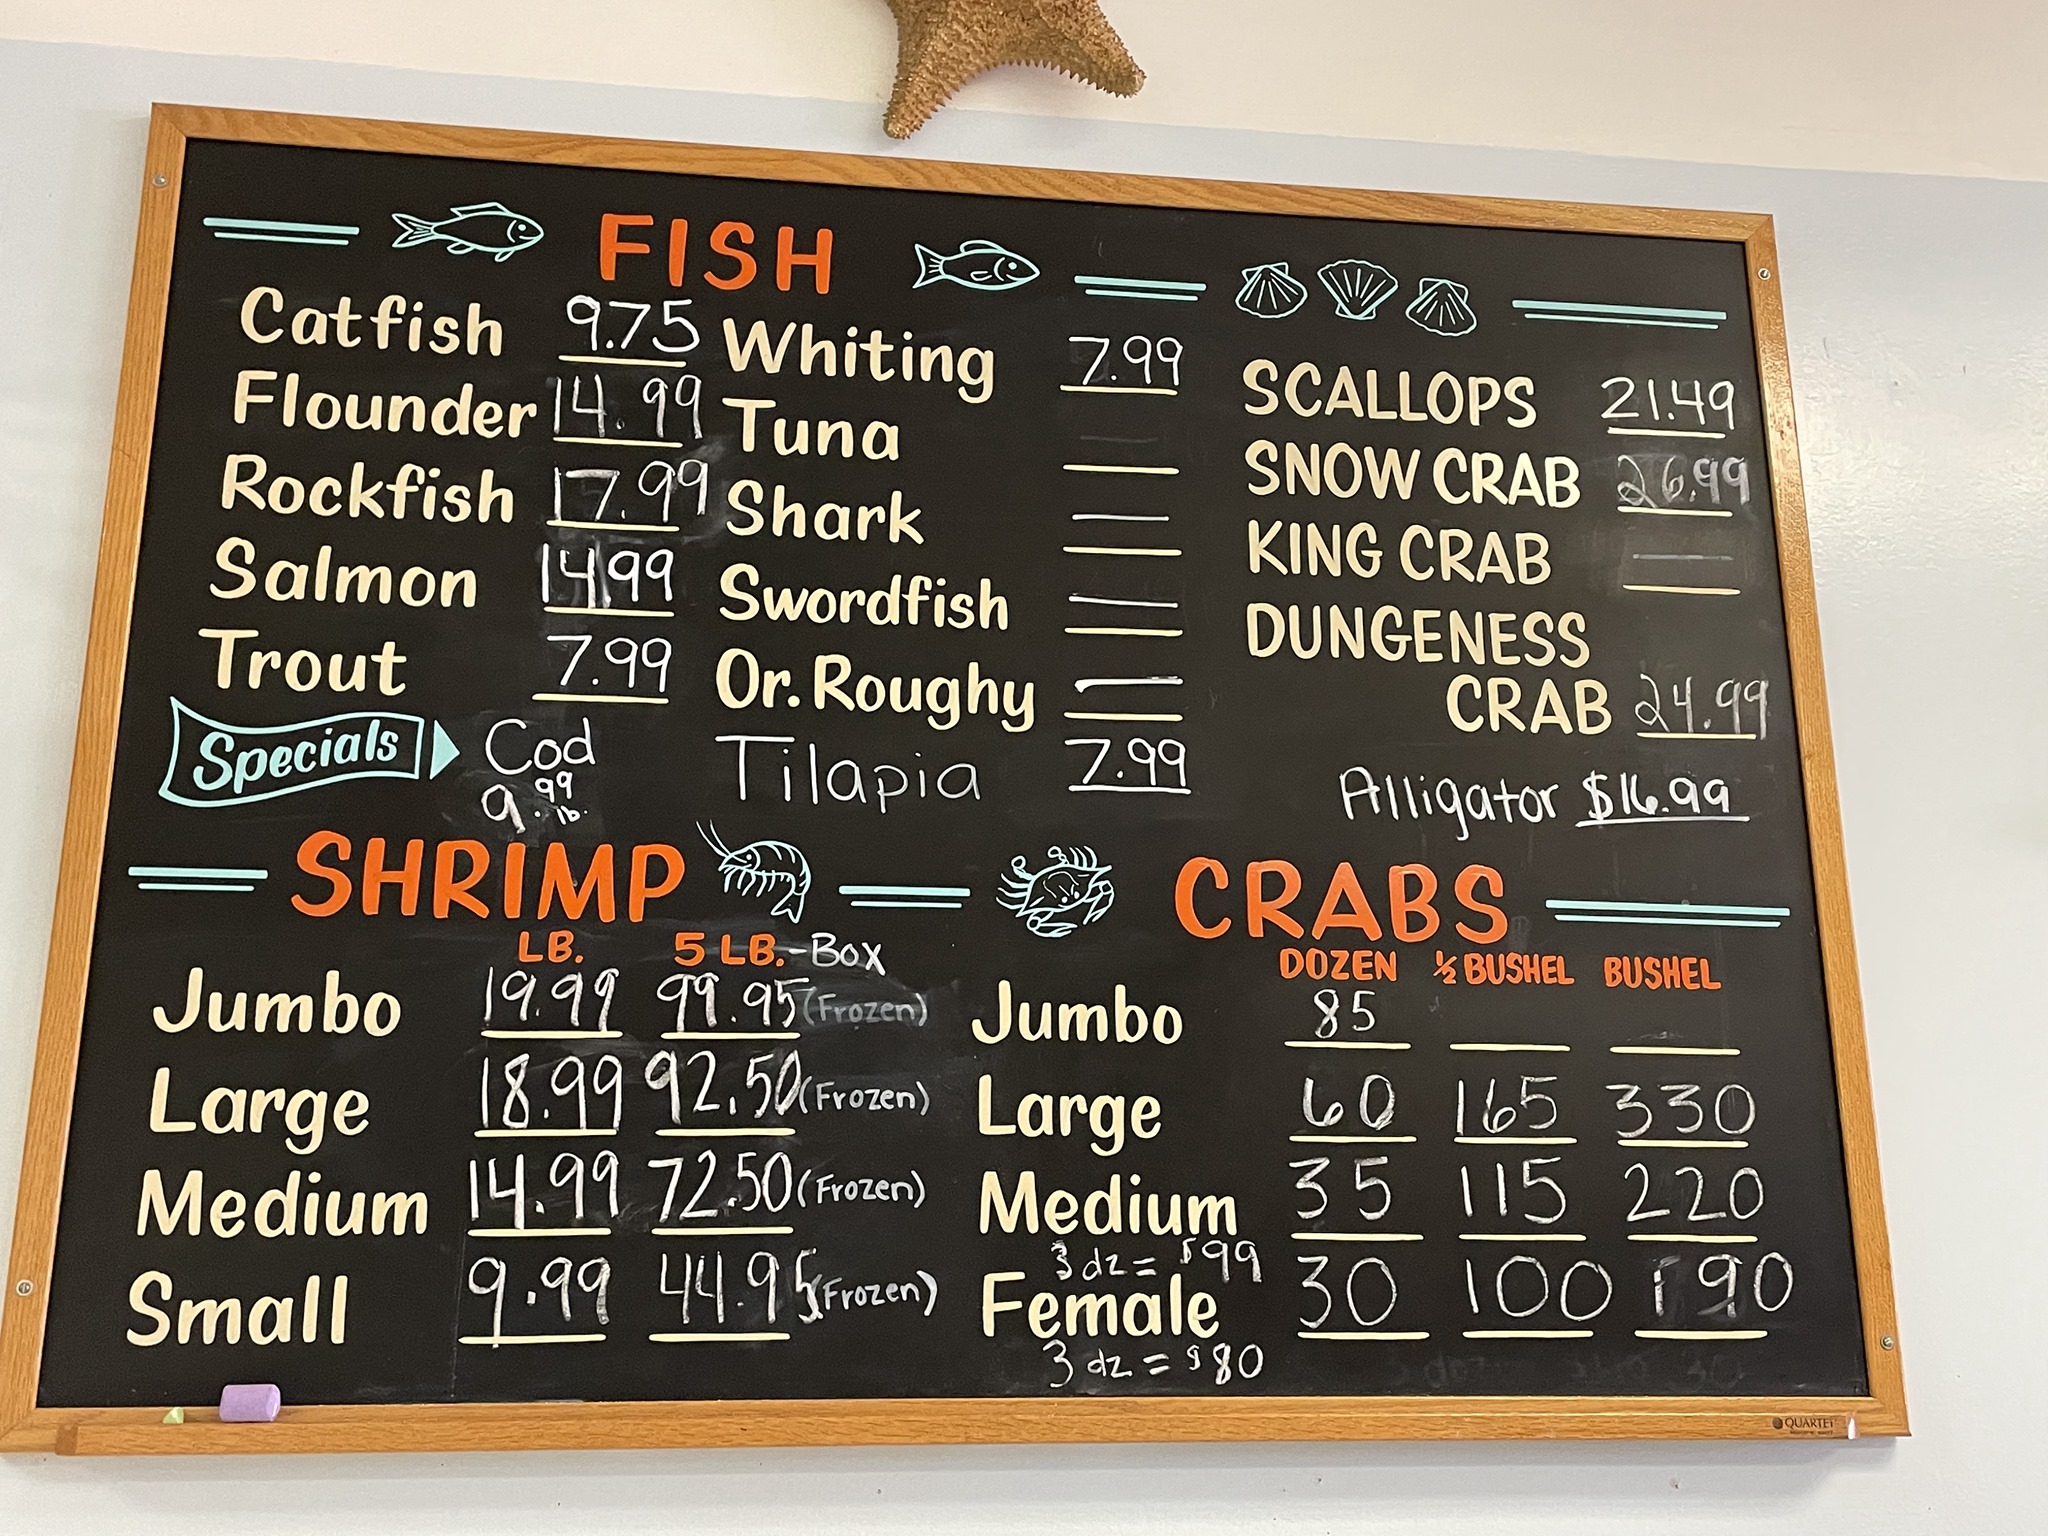 FISH
Catfish 9.75
Flounder 14.99
Rockfish 17.99
Salmon 14.99
Trout 7.99
Specials
Cod
9.99 lb.
Whiting 7.99
Tuna
Shark —
Swordfish —
Or. Roughy —
Tilapia 7.99
SCALLOPS 21.49
SNOW CRAB 26.99
KING CRAB —
DUNGENESS
CRAB 24.99
Alligator $16.99
SHRIMP
LB. 5 LB.-Box
Jumbo 19.99 99.95 (Frozen)
Large 18.99 92.50 (Frozen)
Medium 14.99 72.50 (Frozen)
Small 9.99 44.95 (Frozen)
CRABS
DOZEN ½ BUSHEL BUSHEL
Jumbo 85
Large 60 165 330
Medium 35 115 220
3 dz = $99
Female 30 100 190
3 dz = $80
QUARTET